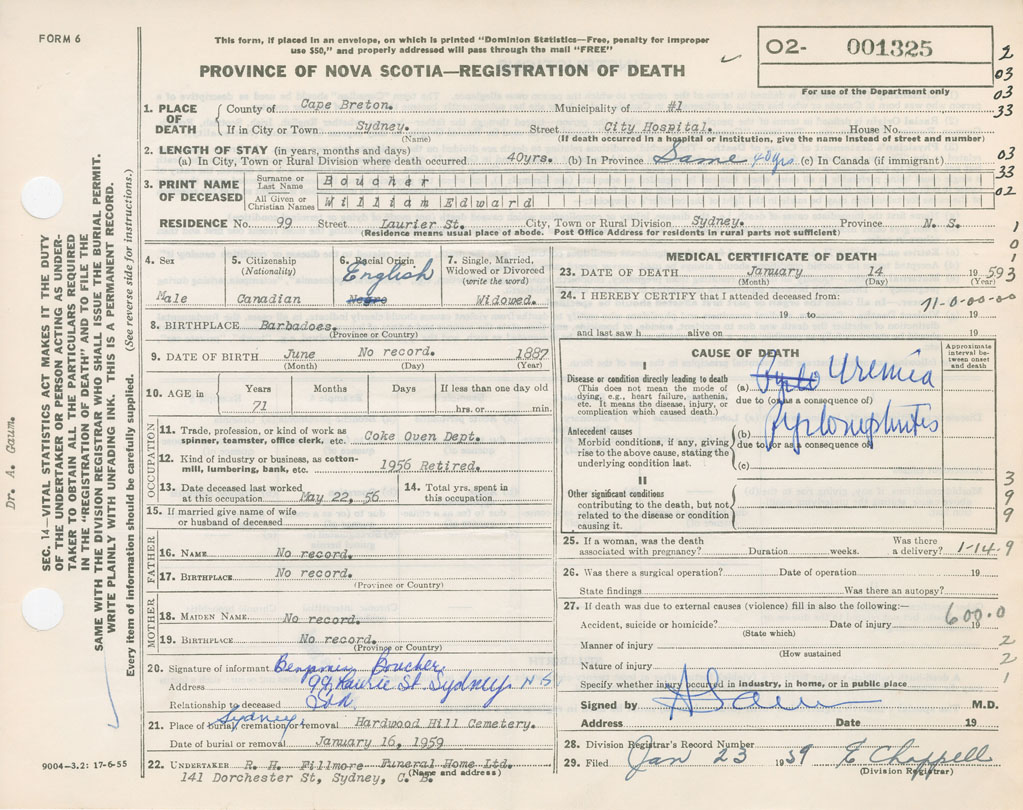 FORM 6
This form, if placed in an envelope, on which is printed "Dominion Statistics—Free, penalty for improper
use $50," and properly addressed will pass through the mail "FREE"
PROVINCE OF NOVA SCOTIA—REGISTRATION OF DEATH
02- 001325
For use of the Department only
2
03
03
33
1. PLACE OF DEATH
County of Cape Breton. Municipality of #1
If in City or Town Sydney. Street City Hospital. House No.
(Name) (If death occurred in a hospital or institution, give the name instead of street and number)
2. LENGTH OF STAY (in years, months and days)
(a) In City, Town or Rural Division where death occurred 40yrs. (b) In Province Same 40yrs (c) In Canada (if immigrant)
03
33
02
3. PRINT NAME OF DECEASED
Surname or Last Name Boucher
All Given or Christian Names William Edward
RESIDENCE No. 99 Street Laurier St. City, Town or Rural Division Sydney. Province N. S.
(Residence means usual place of abode. Post Office Address for residents in rural parts not sufficient)
1
0
1
4. Sex
Male
5. Citizenship (Nationality)
Canadian
6. Racial Origin
English
Negro
7. Single, Married, Widowed or Divorced (write the word)
Widowed.
8. BIRTHPLACE Barbadoes.
(Province or Country)
9. DATE OF BIRTH June No record. 1887
(Month) (Day) (Year)
10. AGE in
Years Months Days If less than one day old
71 hrs. or min.
OCCUPATION
11. Trade, profession, or kind of work as spinner, teamster, office clerk, etc. Coke Oven Dept.
12. Kind of industry or business, as cotton-mill, lumbering, bank, etc. 1956 Retired.
13. Date deceased last worked at this occupation May 22, 56
14. Total yrs. spent in this occupation
15. If married give name of wife or husband of deceased
FATHER
16. NAME No record.
17. BIRTHPLACE No record.
(Province or Country)
MOTHER
18. MAIDEN NAME No record.
19. BIRTHPLACE No record.
(Province or Country)
20. Signature of informant Benjamin Boucher
Address 99 Laurie St. Sydney N S
Relationship to deceased
21. Place of burial, cremation or removal Sydney Hardwood Hill Cemetery.
Date of burial or removal January 16, 1959
22. UNDERTAKER R. H. Fillmore Funeral Home Ltd.
(Name and address)
141 Dorchester St, Sydney, C. B.
MEDICAL CERTIFICATE OF DEATH
23. DATE OF DEATH January 14 1959 3
(Month) (Day) (Year)
24. I HEREBY CERTIFY that I attended deceased from:
71-0-00-00
19 to 19
and last saw h alive on 19
CAUSE OF DEATH
Approximate interval between onset and death
I
Disease or condition directly leading to death
(This does not mean the mode of dying, e.g., heart failure, asthenia, etc. It means the disease, injury, or complication which caused death.)
(a) Uremia
due to (or as a consequence of)
Antecedent causes
Morbid conditions, if any, giving rise to the above cause, stating the underlying condition last.
(b) Pyelonephritis
due to (or as a consequence of)
(c)
II
Other significant conditions contributing to the death, but not related to the disease or condition causing it.
3
9
9
25. If a woman, was the death associated with pregnancy? Duration weeks. Was there a delivery? 1-14-9
26. Was there a surgical operation? Date of operation 19
State findings Was there an autopsy?
27. If death was due to external causes (violence) fill in also the following:—
600.0
Accident, suicide or homicide? Date of injury 19
(State which)
Manner of injury 2
(How sustained
Nature of injury 2
Specify whether injury occurred in industry, in home, or in public place 1
Signed by M.D.
Address Date 19
28. Division Registrar's Record Number
29. Filed Jan 23 1959 E Chappell
(Division Registrar)
SEC. 14—VITAL STATISTICS ACT MAKES IT THE DUTY
OF THE UNDERTAKER OR PERSON ACTING AS UNDER-
TAKER TO OBTAIN ALL THE PARTICULARS REQUIRED
IN THE "REGISTRATION OF DEATH" AND TO FILE THE
SAME WITH THE DIVISION REGISTRAR WHO SHALL ISSUE THE BURIAL PERMIT.
WRITE PLAINLY WITH UNFADING INK. THIS IS A PERMANENT RECORD.
Every item of information should be carefully supplied. (See reverse side for instructions.)
Dr. A. Gaum.
9004-3.2: 17-6-55